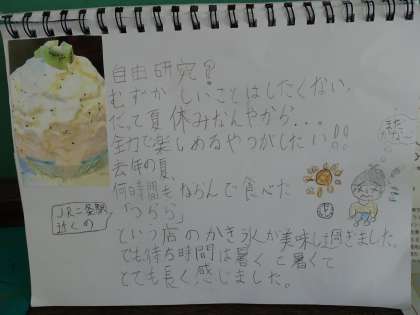 自由研究?
むずかしいことはしたくない、
だって夏休みなんやから...
全力で楽しめるやつがしたい!!
去年の夏、
何時間もならんで食べた
「つらら」
という店のかき氷が美味し過ぎました。
でも待ち時間は暑くて暑くて
とても長く感じました。
JR二条駅
近くの